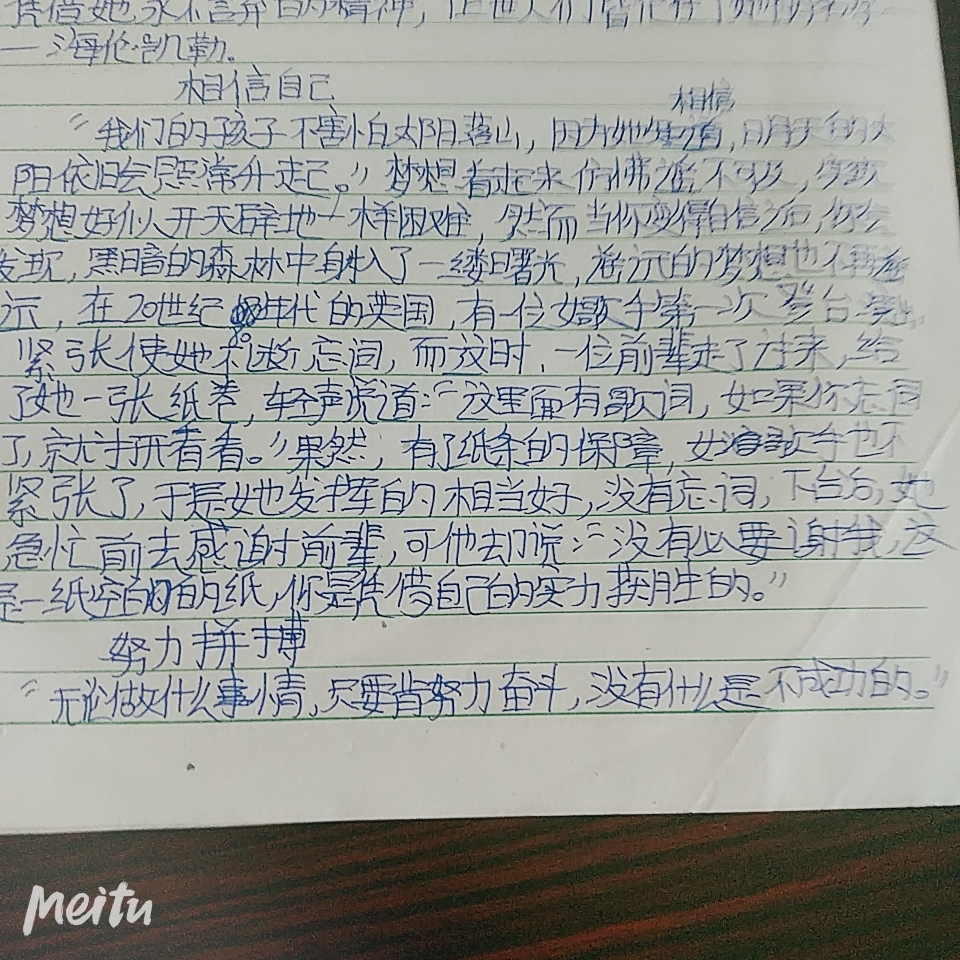 凭借她永不言弃的精神,让世人们皆记住了她的
—海伦·凯勒。
相信自己
相信
“我们的孩子不害怕太阳落山,因为她知道,明天的太
阳依旧会照常升起。”梦想看起来仿佛遥不可及,
梦想好似开天辟地一样困难,然而当你变得自信之后,你会
发现,黑暗的森林中射入了一缕曙光,遥远的梦想也不再遥
远,在20世纪80年代的英国,有一位女歌手第一次登台演出,
紧张使她不断忘词,而这时,一位前辈走了过来,给
了她一张纸卷,轻声说道:“这里面有歌词,如果你忘词
了,就打开看看。”果然,有了纸条的保障,女歌手也不
紧张了,于是她发挥的相当好,没有忘词,下台后,她
急忙前去感谢前辈,可他却说:“没有必要谢我,这
是一纸空白的纸,你是凭借自己的实力获胜的。”
努力拼搏
“无论做什么事情,只要肯努力奋斗,没有什么是不成功的。”
Meitu